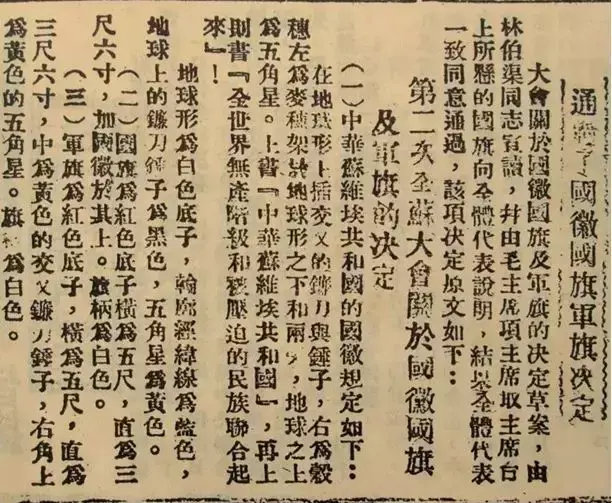 通過了國徽國旗軍旗决定
大會關於國徽國旗及軍旗的决定草案，由
林伯渠同志宣讀，幷由毛主席項主席取主席台
上所懸的國旗向全體代表說明，結果全體代表
一致同意通過，該項决定原文如下：
第二次全蘇大會關於國徽國旗
及軍旗的决定
（一）中華蘇維埃共和國的國徽規定如下：
在地球形上插交叉的鐮刀與錘子，右爲穀
穗左爲麥穗架於地球形之下和兩旁，地球之上
爲五角星。上書『中華蘇維埃共和國』，再上
則書『全世界無產階級和被壓迫的民族聯合起
來』！
地球形爲白色底子，輪廓經緯線爲藍色，
地球上的鐮刀錘子爲黑色，五角星爲黃色。
（二）國旗爲紅色底子橫爲五尺，直爲三
尺六寸，加國徽於其上。旗柄爲白色。
（三）軍旗爲紅色底子，橫爲五尺，直爲
三尺六寸，中爲黃色的交叉鐮刀錘子，右角上
爲黃色的五角星。旗爲白色。